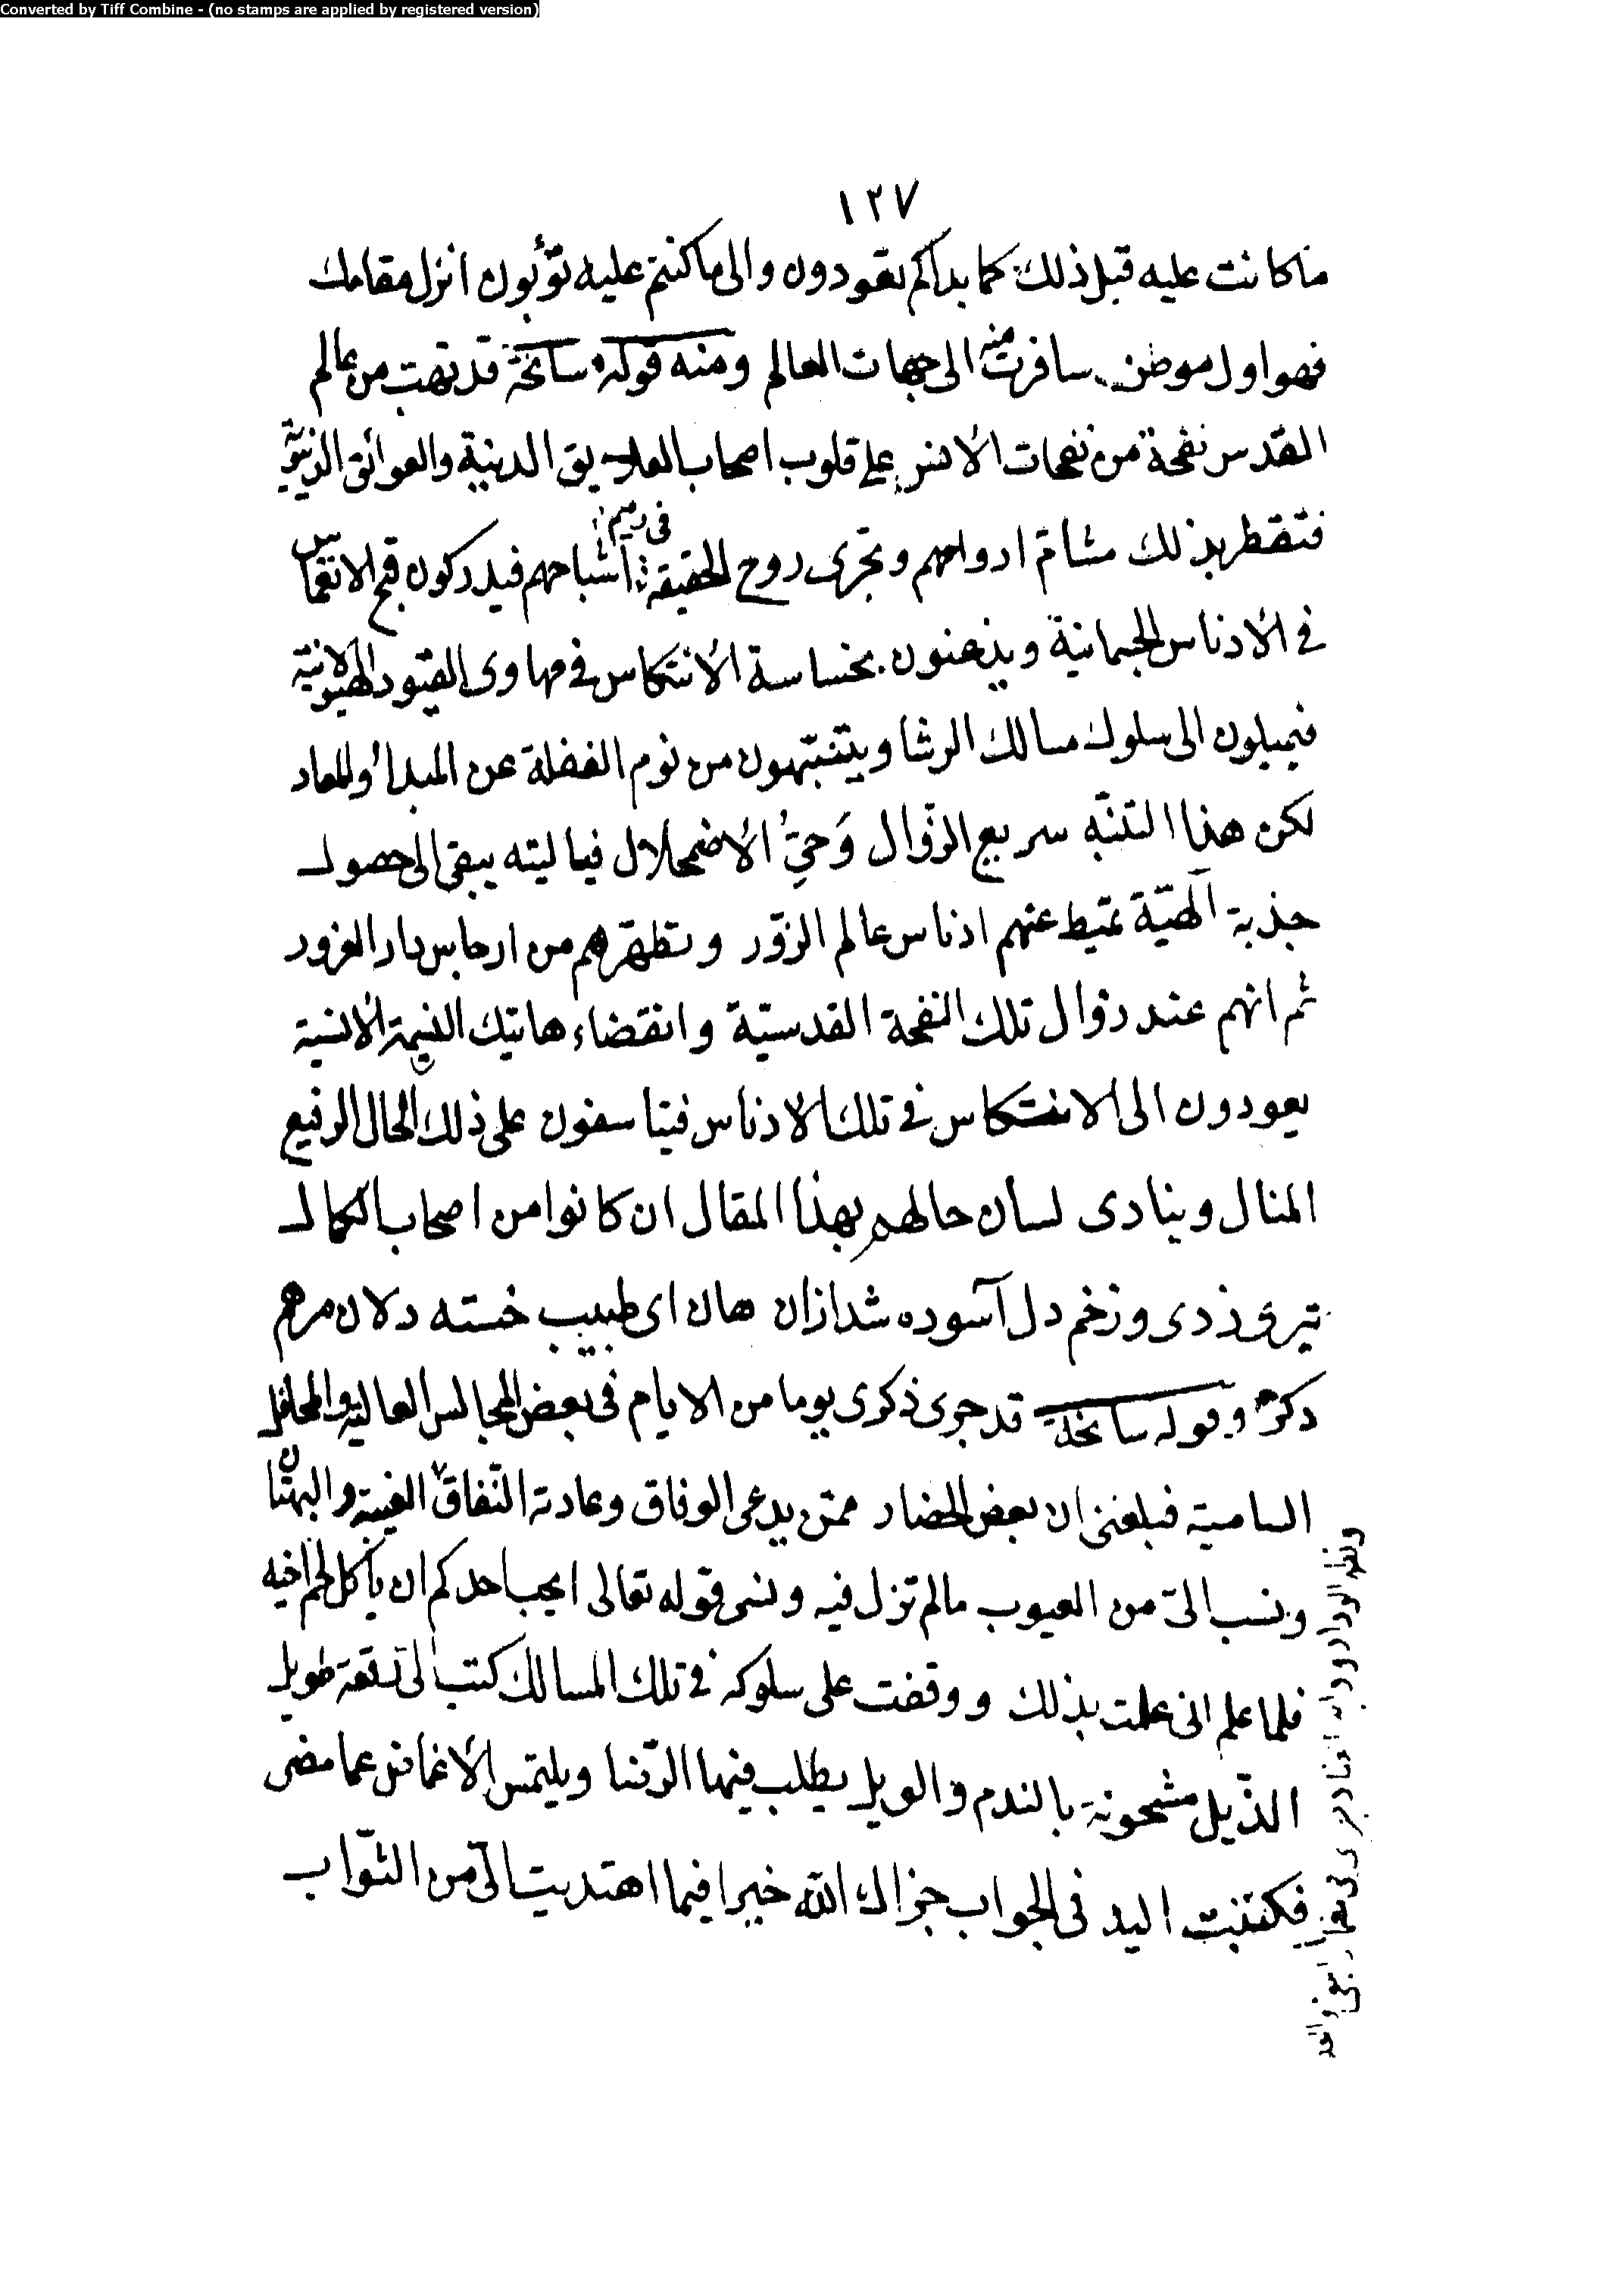 Converted by Tiff Combine - (no stamps are applied by registered version)
١٢٧
ما كانت عليه قبل ذلك كما بدأكم تعودون والى ما كنتم عليه تؤبون انزل مقامك
فهو اول موطن سافرت منه الى جهات العالم ومنه قوله سانحة قد تهب من عالم
القدس نفحة من نفحات الأنس على قلوب اصحاب العلايق الدينية والعوائق الدنيوية
فتقطر بذلك مشام ارواحهم وتجرى روح الحقيقة فى رميم اشباحهم فيدركون قبح الانغماس
فى الأدناس الجسمانية ويذعنون بخساسة الأنتكاس فى مهاوى القيود الهيولانية
فيميلون الى سلوك مسالك الرشا ويتنبّهون من نوم الغفلة عن المبدأ والمعاد
لكن هذا التنبّه سريع الزوال وَحِىُّ الأضمحلال فيا ليته يبقى الى حصول
جذبة الهيّة تميط عنهم ادناس عالم الزور وتطهّرهم من ارجاس دار الغرور
ثم انهم عند زوال تلك النفحة القدسيّة وانقضاء هاتيك النسيمة الأنسية
يعودون الى الانتكاس فى تلك الادناس فيتاسفون على ذلك الحال الرفيع
المنال وينادى لسان حالهم بهذا المقال ان كانوا من اصحاب الكمال
تيرى زدى وزخم دل آسوده شد ازان هان اى طبيب خسته دلان مرهم
دكر وقوله سانحة قد جرى ذكرى يوما من الايام فى بعض المجالس العالية والمحافل
السامية فبلغنى ان بعض الحضار ممّن يدعى الوفاق وعادته النّفاق الغيبة والبهتان
ونسب الىّ من العيوب مالم تزل فيه ونسى قوله تعالى ايحب احدكم ان يأكل لحم اخيه
فلما علم انى علمت بذلك ووقفت على سلوكه فى تلك المسالك كتب الىّ رقعة طويل
الذّيل مشحونة بالندم والويل يطلب فيها الرّضا ويلتمس الأغماض عما مضى
فكتبت اليه فى الجواب جزاك الله خيرا فيما اهتديت الىّ من الثّواب